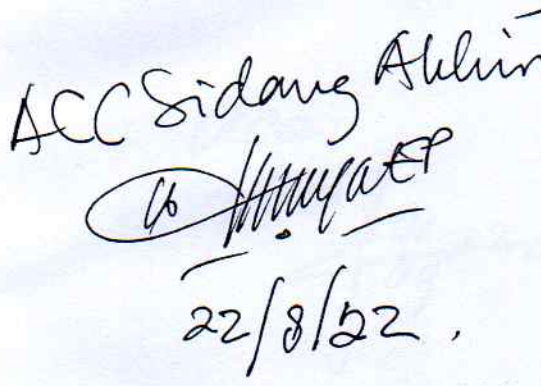 ACC Sidang Akhir
22/8/22.